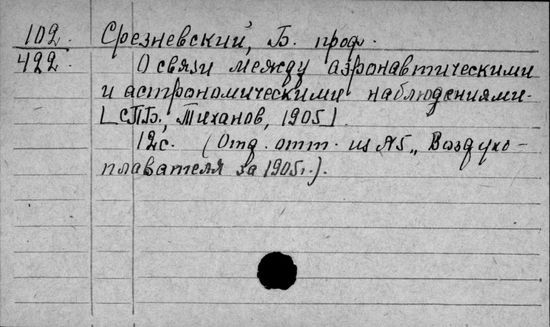 102. Срезневский, Б. проф.
422. О связи между аэронавтическими
и астрономическими наблюдениями.
[СПБ, Тиханов, 1905].
12с. (Отд. отт. из №5 „Воздухо-
плавателя за 1905г.).